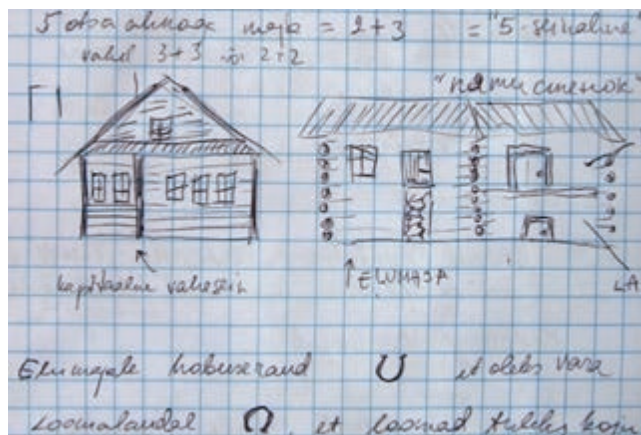 5 otsa aknaga maja = 2+3 = "5-seinaline"
vahel 3+3 või 2+2
"пятистенок"
kapitaalne vahesein
ELUMAJA
LA
Elumajale hobuseraud et oleks vara
Loomalaudal , et loomad tuleks koju